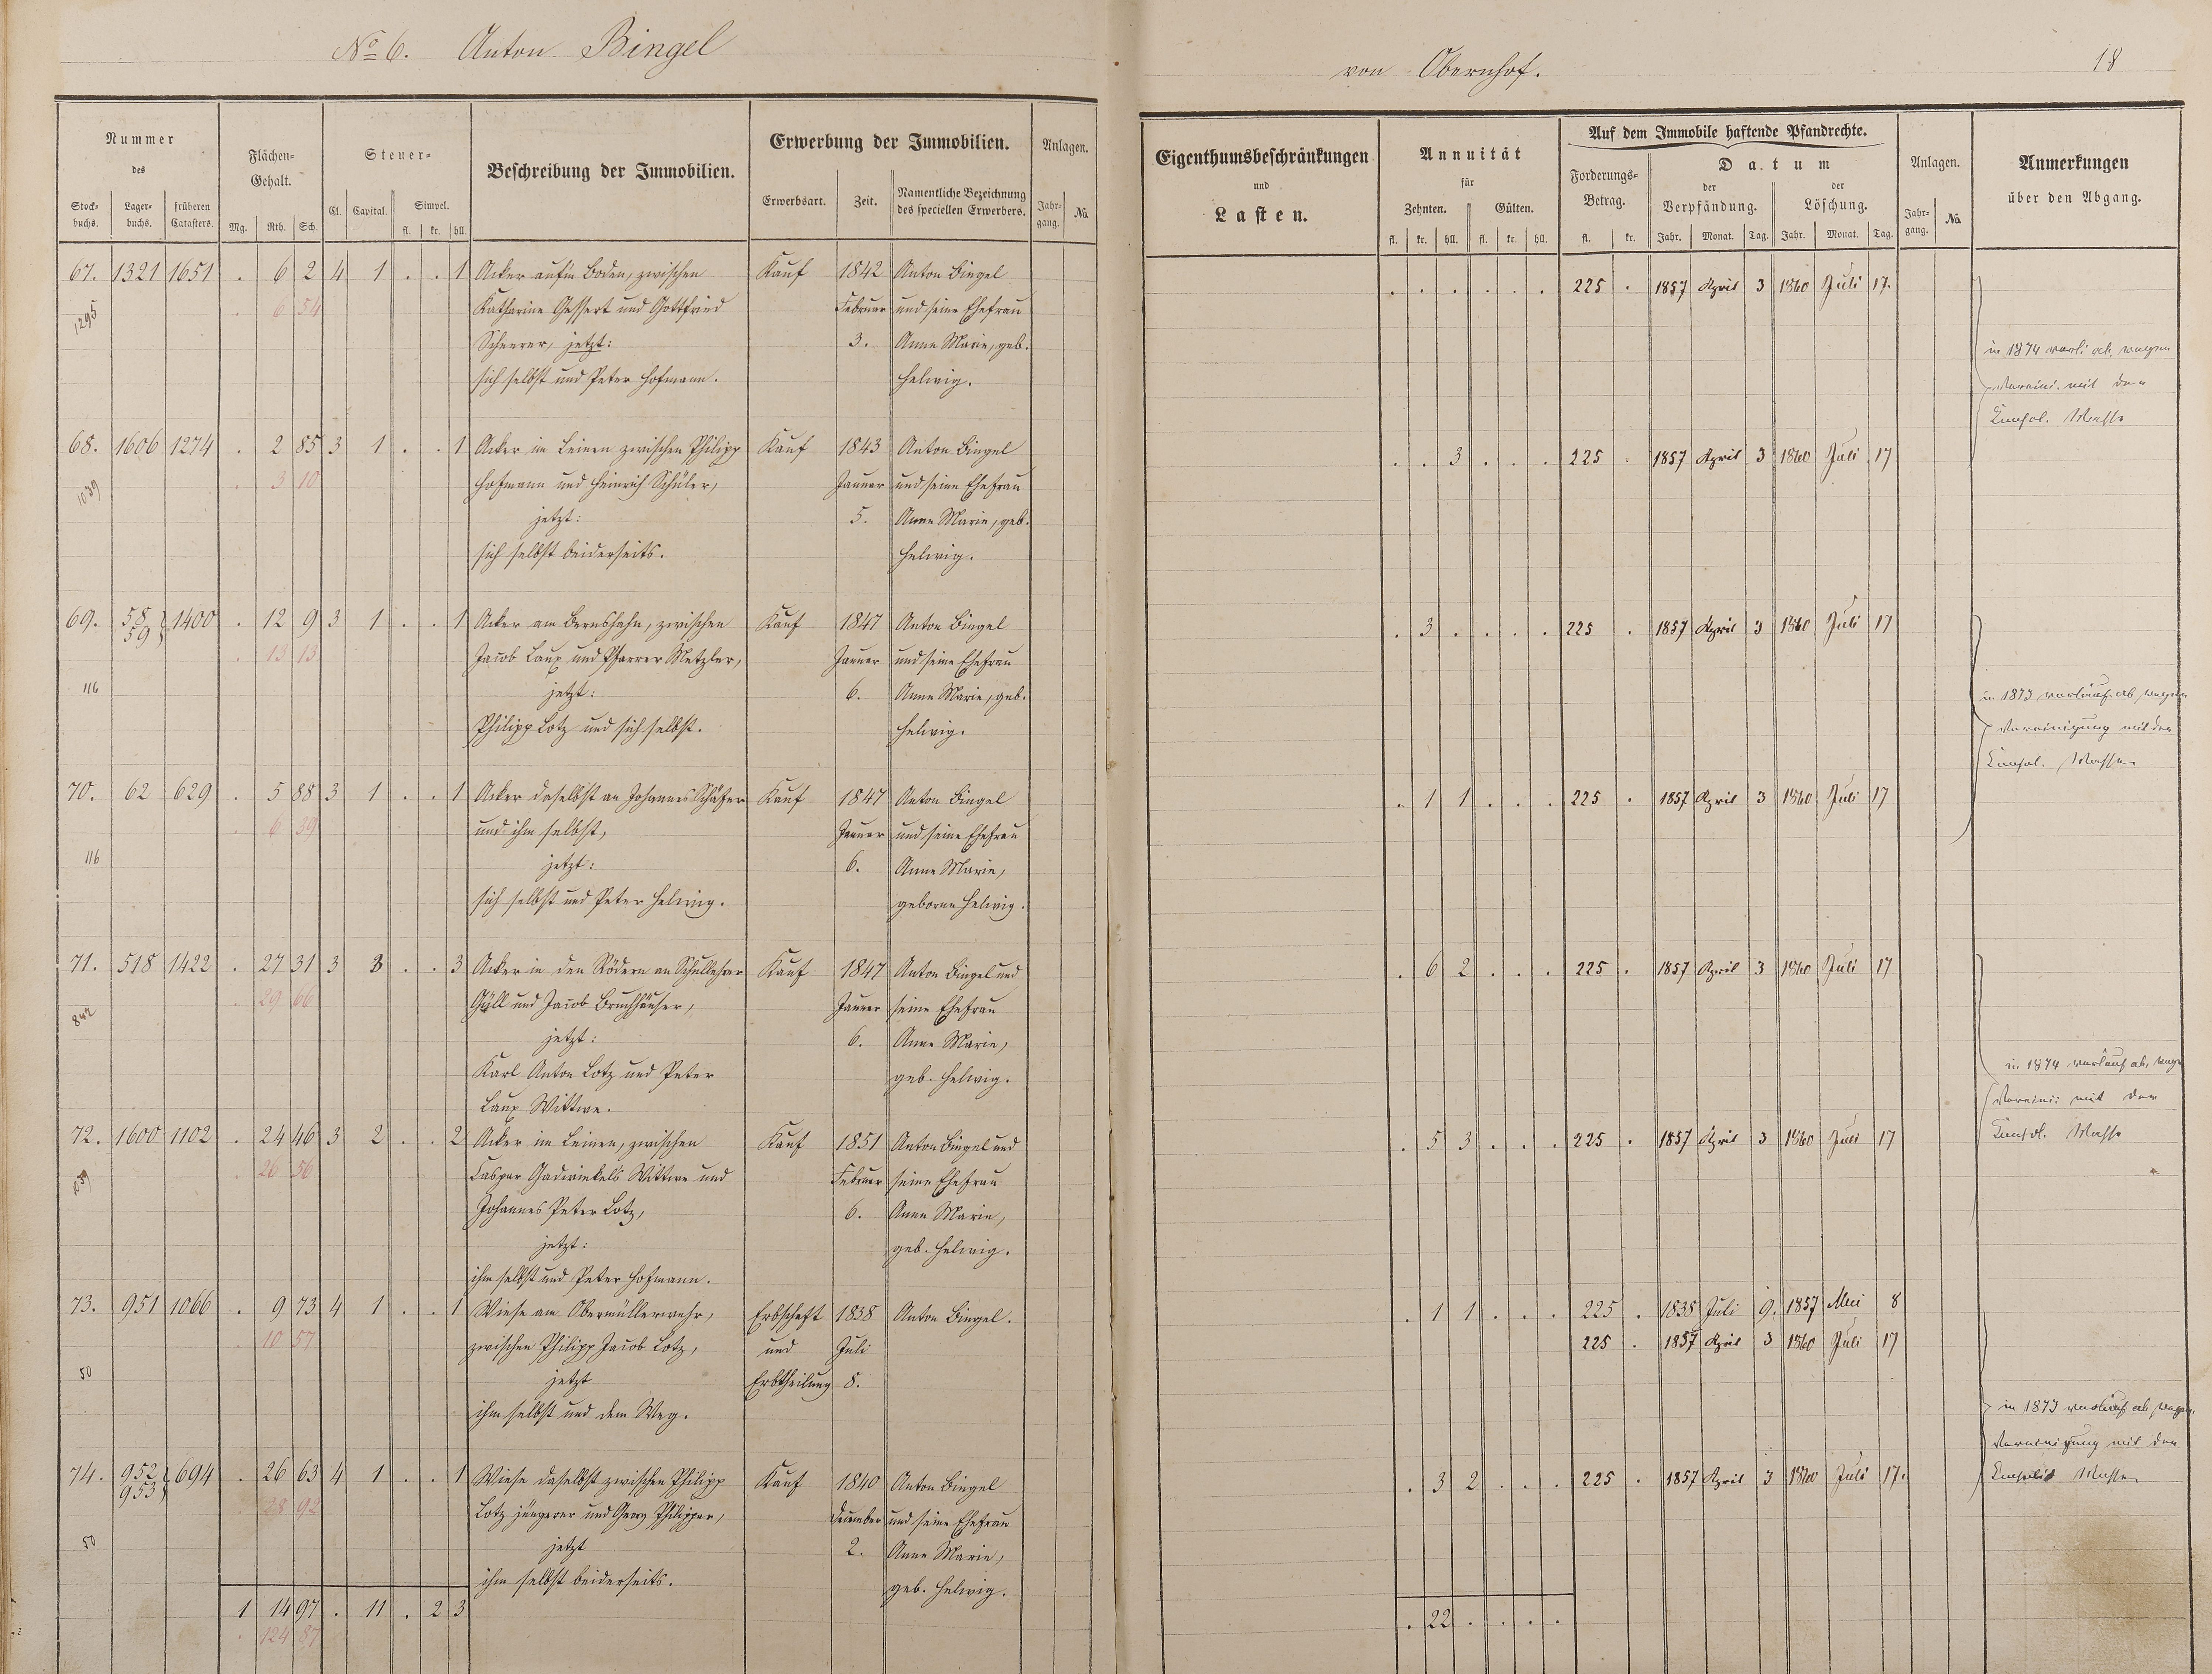 No 6. Anton Bingel
von Obernhof.
18
Nummer
des
Stock-buchs. Lager-buchs. früheren Catasters.
Flächen-Gehalt.
Mg. Rth. Sch.
Steuer-
Cl. Capital. Simpel.
fl. kr. hll.
Beschreibung der Immobilien.
Erwerbung der Immobilien.
Erwerbsart. Zeit. Namentliche Bezeichnung des speciellen Erwerbers.
Anlagen.
Jahr-gang. No.
Eigenthumsbeschränkungen
und
Lasten.
Annuität
für
Zehnten. Gülten.
fl. kr. hll. fl. kr. hll.
Auf dem Immobile haftende Pfandrechte.
Forderungs-Betrag.
fl. kr.
Datum
der Verpfändung. der Löschung.
Jahr. Monat. Tag. Jahr. Monat. Tag.
Anlagen.
Jahr-gang. No.
Anmerkungen
über den Abgang.
67. 1321 1651 . 6 2 4 1 . . 1 Acker auf'm Boden, zwischen Kauf 1842 Anton Bingel . . . . . . 225 . 1857 April 3 1860 Juli 17.
1295 . 6 54 Katharine Gessert und Gottfried Februar und seine Ehefrau
Scheerer, jetzt: 3. Anne Marie, geb. in 1874 vorl: ab, wegen
sich selbst und Peter Hofmann. Helwig. Vereini. mit der
Consol. Masse
68. 1606 1274 . 2 85 3 1 . . 1 Acker im Leinen zwischen Philipp Kauf 1843 Anton Bingel . . 3 . . . 225 . 1857 April 3 1860 Juli 17
1039 . 3 10 Hofmann und Heinrich Schüler, Januar und seine Ehefrau
jetzt: 5. Anne Marie, geb.
sich selbst beiderseits. Helwig.
69. 58 59 1400 . 12 9 3 1 . . 1 Acker am Bernshahn, zwischen Kauf 1847 Anton Bingel . 3 . . . . 225 . 1857 April 3 1860 Juli 17
. 13 13 Jacob Laux und Pfarrer Metzler, Januar und seine Ehefrau
116 jetzt: 6. Anne Marie, geb. in 1873 vorläuf. ab, wegen
Philipp Lotz und sich selbst. Helwig. Vereinigung mit der
Consol. Masse.
70. 62 629 . 5 88 3 1 . . 1 Acker daselbst an Johannes Schäfer Kauf 1847 Anton Bingel . 1 1 . . . 225 . 1857 April 3 1860 Juli 17
. 6 39 und ihm selbst, Januar und seine Ehefrau
116 jetzt: 6. Anne Marie,
sich selbst und Peter Helwig. geborne Helwig.
71. 518 1422 . 27 31 3 3 . . 3 Acker in den Rödern an Schullehrer Kauf 1847 Anton Bingel und . 6 2 . . . 225 . 1857 April 3 1860 Juli 17
842 . 29 66 Güll und Jacob Bruchhäuser, Januar seine Ehefrau
jetzt: 6. Anne Marie,
Karl Anton Lotz und Peter geb. Helwig. in 1874 vorläuf ab, wegen
Laux Wittwe. Vereini: mit der
72. 1600 1102 . 24 46 3 2 . . 2 Acker im Leinen, zwischen Kauf 1851 Anton Bingel und . 5 3 . . . 225 . 1857 April 3 1860 Juli 17 Consol. Masse
1039 . 26 56 Caspar Gadwinkels Wittwe und Februar seine Ehefrau
Johannes Peter Lotz, 6. Anne Marie,
jetzt: geb. Helwig.
ihm selbst und Peter Hofmann.
73. 951 1066 . 9 73 4 1 . . 1 Wiese am Obermüllerwehr, Erbschaft 1838 Anton Bingel. . 1 1 . . . 225 . 1838 Juli 9. 1857 Mai 8
. 10 57 zwischen Philipp Jacob Lotz, und Juli 225 . 1857 April 3 1860 Juli 17
50 jetzt Erbtheilung 8.
ihm selbst und dem Weg. in 1873 vorläuf ab, wegen
Vereinigung mit der
74. 952 953 694 . 26 63 4 1 . . 1 Wiese daselbst zwischen Philipp Kauf 1840 Anton Bingel . 3 2 . . . 225 . 1857 April 3 1860 Juli 17. Consolid Masse.
. 28 92 Lotz jüngerer und Georg Philippar, December und seine Ehefrau
50 jetzt 2. Anne Marie,
ihm selbst beiderseits. geb. Helwig.
1 14 97 . 11 . 2 3 . 22 . . . .
. 124 87